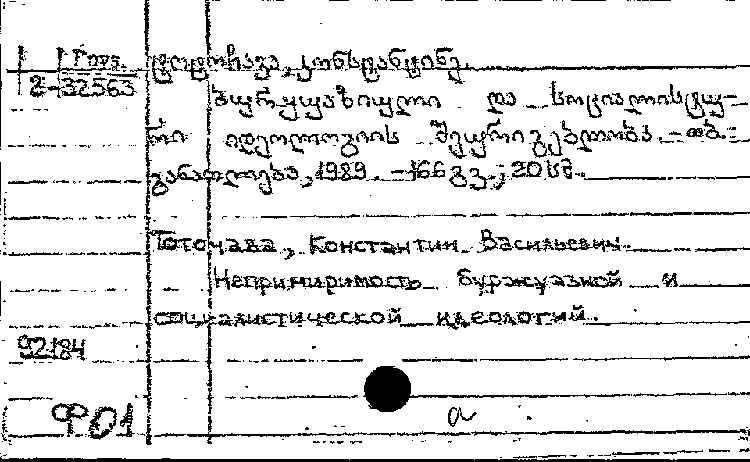 Груз.
2-32563
ტოტოჩავა, კონსტანტინე.
ბურჟუაზიული და სოციალისტუ-
რი იდეოლოგიის შეურიგებლობა. - თბ.:
განათლება, 1989. - 166 გვ.; 20 სმ.
Тоточава, Константин Васильевич.
Непримиримость буржуазной и
социалистической идеологий.
92184
ф01
a